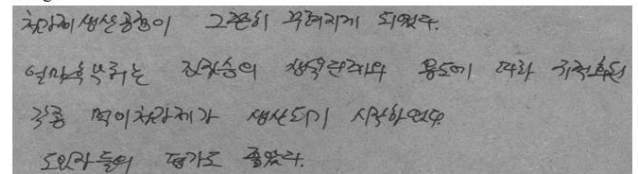 첨가제생산공정이 그쯘히 꾸려지게 되였다.
얼마후부터는 집짐승의 생육단계와 용도에 따라 규격화된
각종 먹이첨가제가 생산되기 시작하였다.
도입자들의 평가도 좋았다.